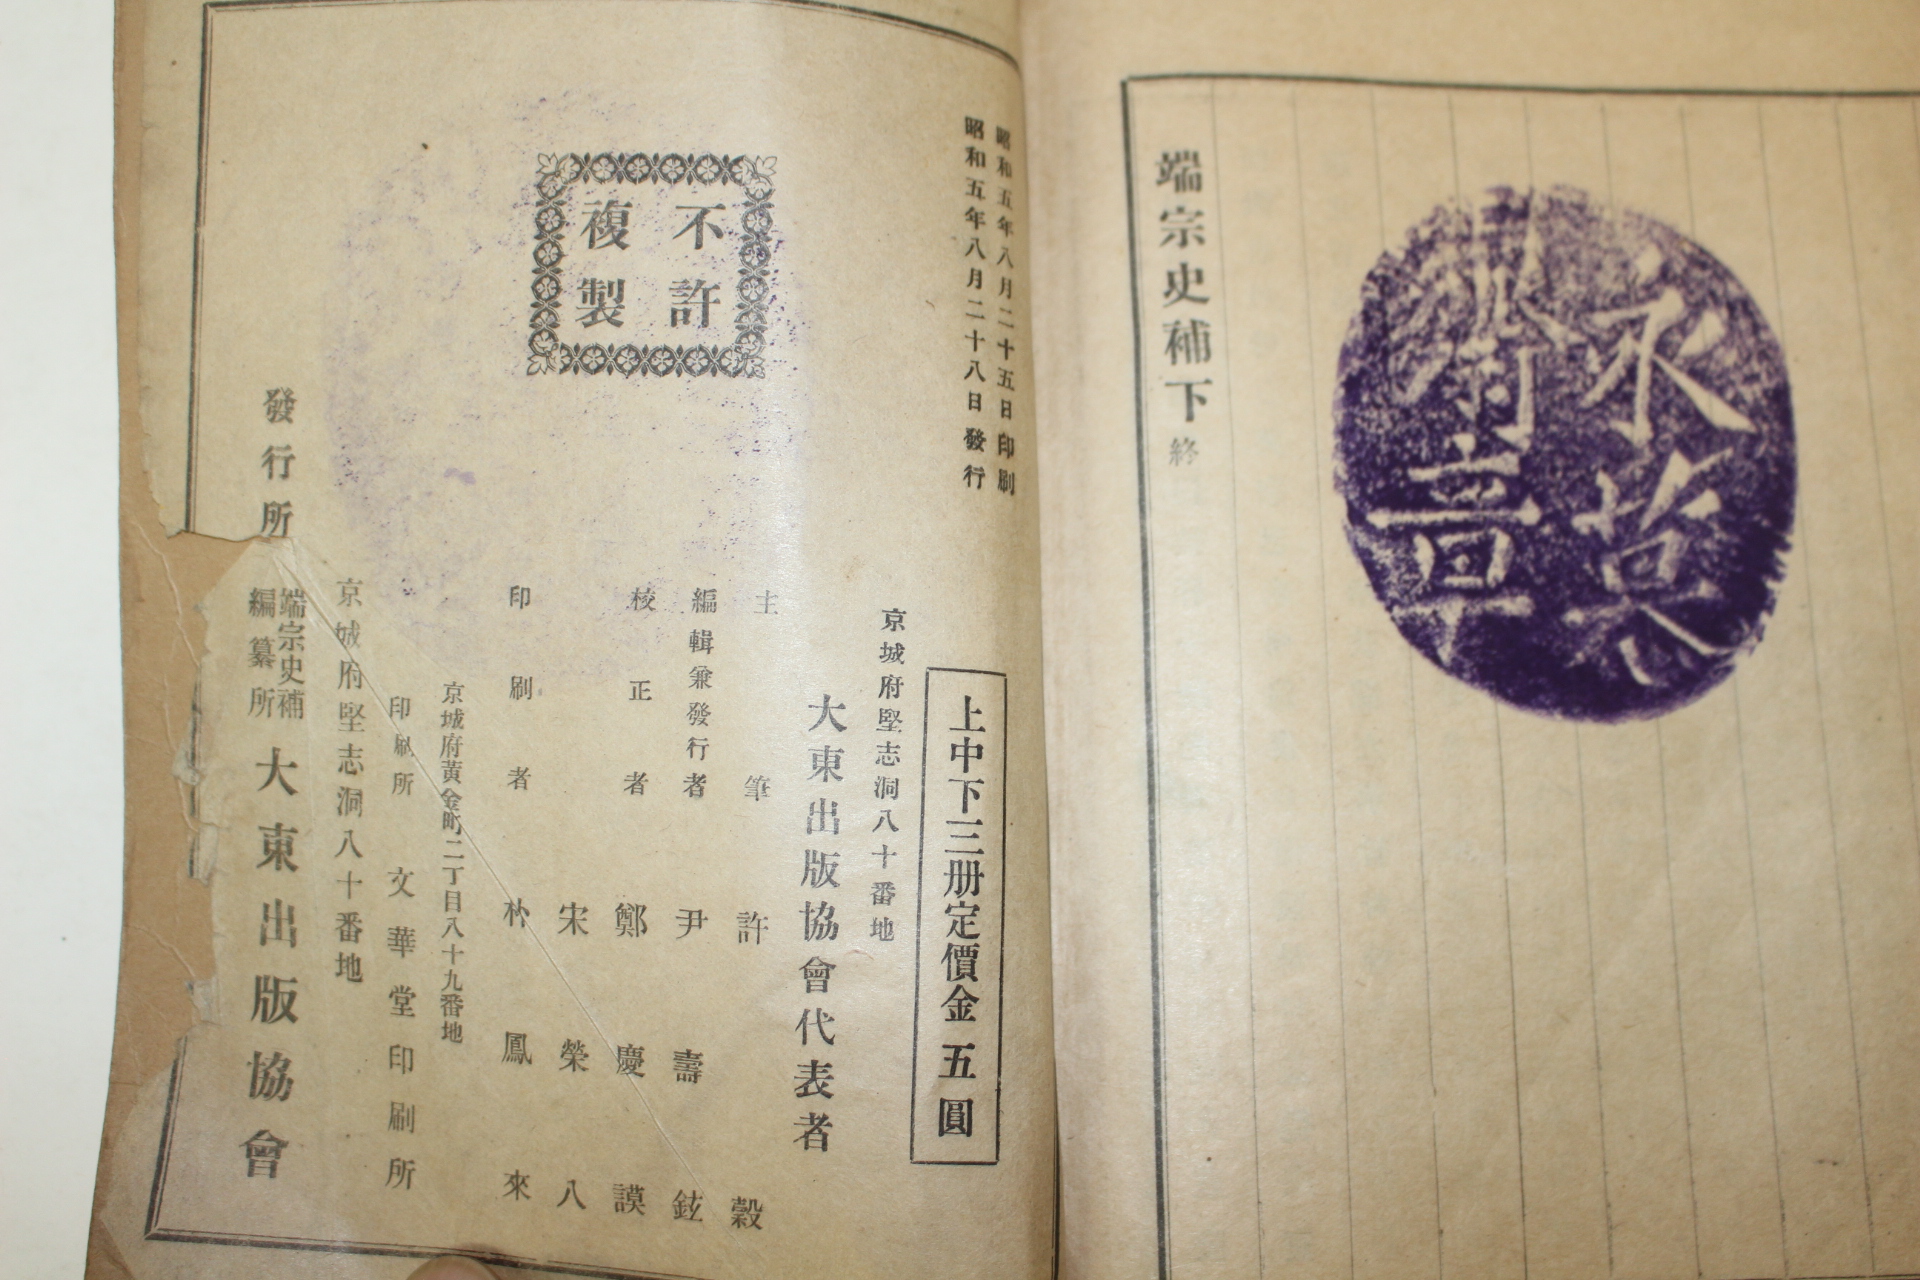 端宗史補下終
永慕
齋章
昭和五年八月二十五日印刷
昭和五年八月二十八日發行
上中下三册定價金五圓
京城府堅志洞八十番地
大東出版協會代表者
主筆 許穀
編輯兼發行者 尹壽鉉
校正者 鄭慶謨
宋榮八
印刷者 朴鳳來
京城府黃金町二丁目八十九番地
印刷所 文華堂印刷所
京城府堅志洞八十番地
發行所 端宗史補編纂所 大東出版協會
不許
複製